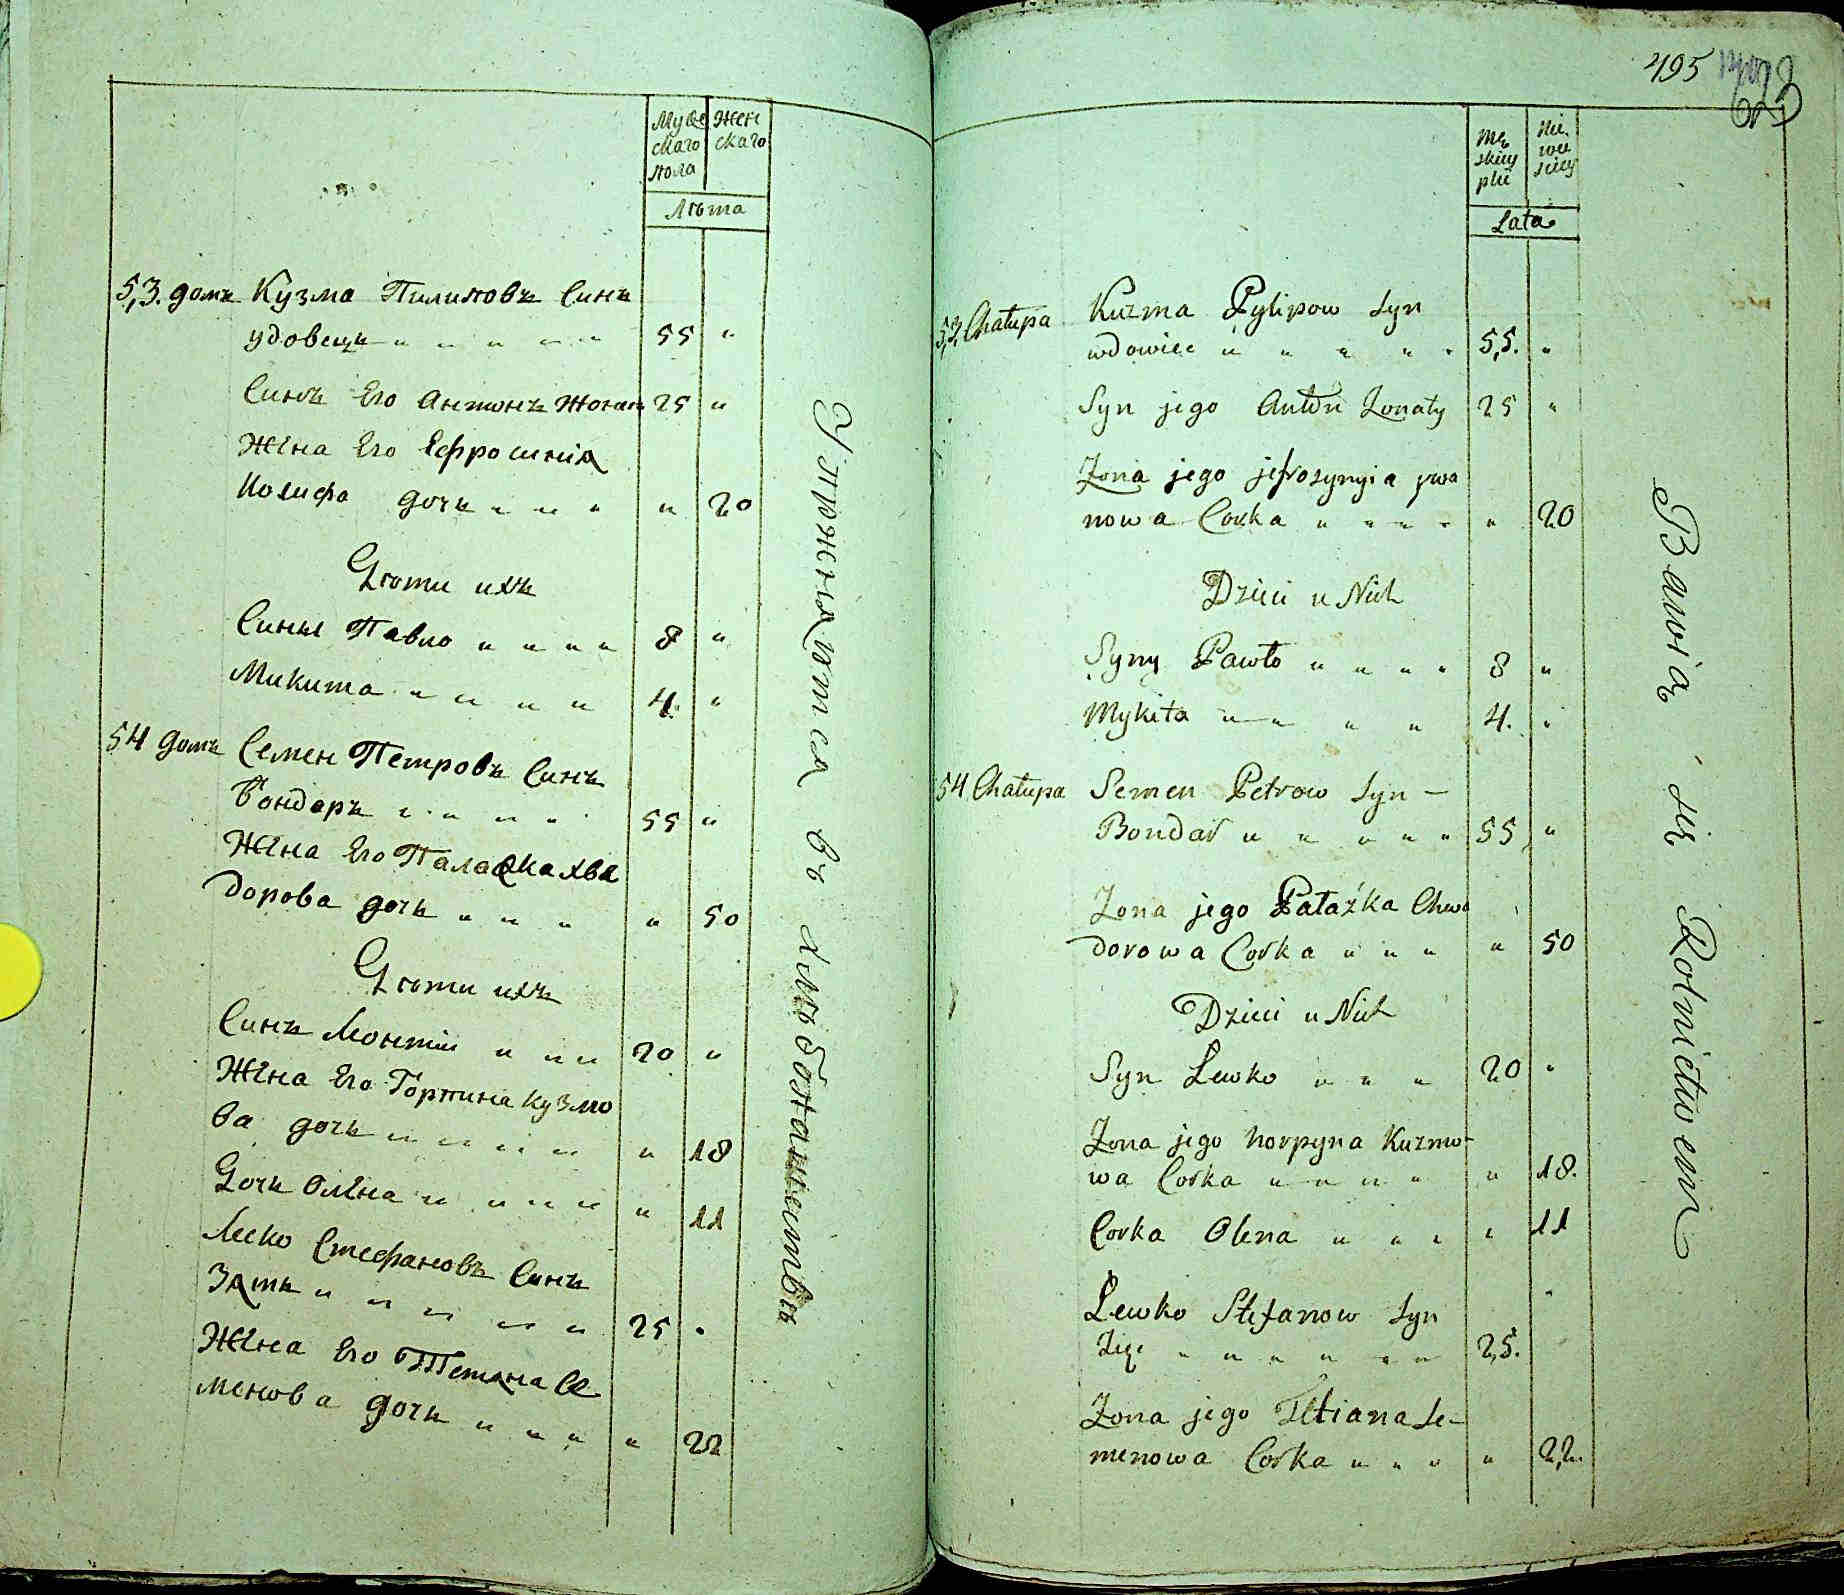 Мужескаго пола
Женскаго
Лѣта
53. домъ Кузма Пилиповъ Синъ
удовецъ " " " " " 55 "
Синъ Его Антонъ Жонатъ 25 "
Жена Его Ефросинія
Іосифа дочь " " " " 20
Дѣти ихъ
Сины Павло " " " " 8 "
Микита " " " " " 4. "
54 домъ Семен Петровъ Синъ
Бондаръ " " " " 55 "
Жена Его Палажка Хве
дорова дочь " " " " 50
Дѣти ихъ
Синъ Леонтій " " " 20 "
Жена Его Горпина Кузмо
ва дочь " " " " " " 18
Дочь Олена " " " " " 11
Леско Стефановъ Синъ
Зять " " " " " 25 "
Жена Его Тетяна Се
менова дочь " " " " " 22
Упражняются въ хлѣбопашествѣ
495
693
Męskiey płci
Niewiesciey
Lata
53. Chałupa Kuzma Pylipow Syn
wdowiec " " " " " 55. "
Syn jego Anton Żonaty 25 "
Żona jego jefrosynyia ywa
nowa Corka " " " " " 20
Dzieci u Nich
Syny Pawło " " " " 8 "
Mykita " " " " 4. "
54 Chałupa Semen Petrow Syn –
Bondar " " " " " 55 "
Żona jego Pałażka Chwe
dorowa Corka " " " " 50
Dzieci u Nich
Syn Lewko " " " 20 "
Żona jego horpyna Kuzmo-
wa Corka " " " " " 18.
Corka Olena " " " " " 11
Lewko Stefanow Syn
Zięć " " " " " " 25.
Żona jego Tetiana Se-
menowa Corka " " " " 22.
Bawią się Rolnictwem